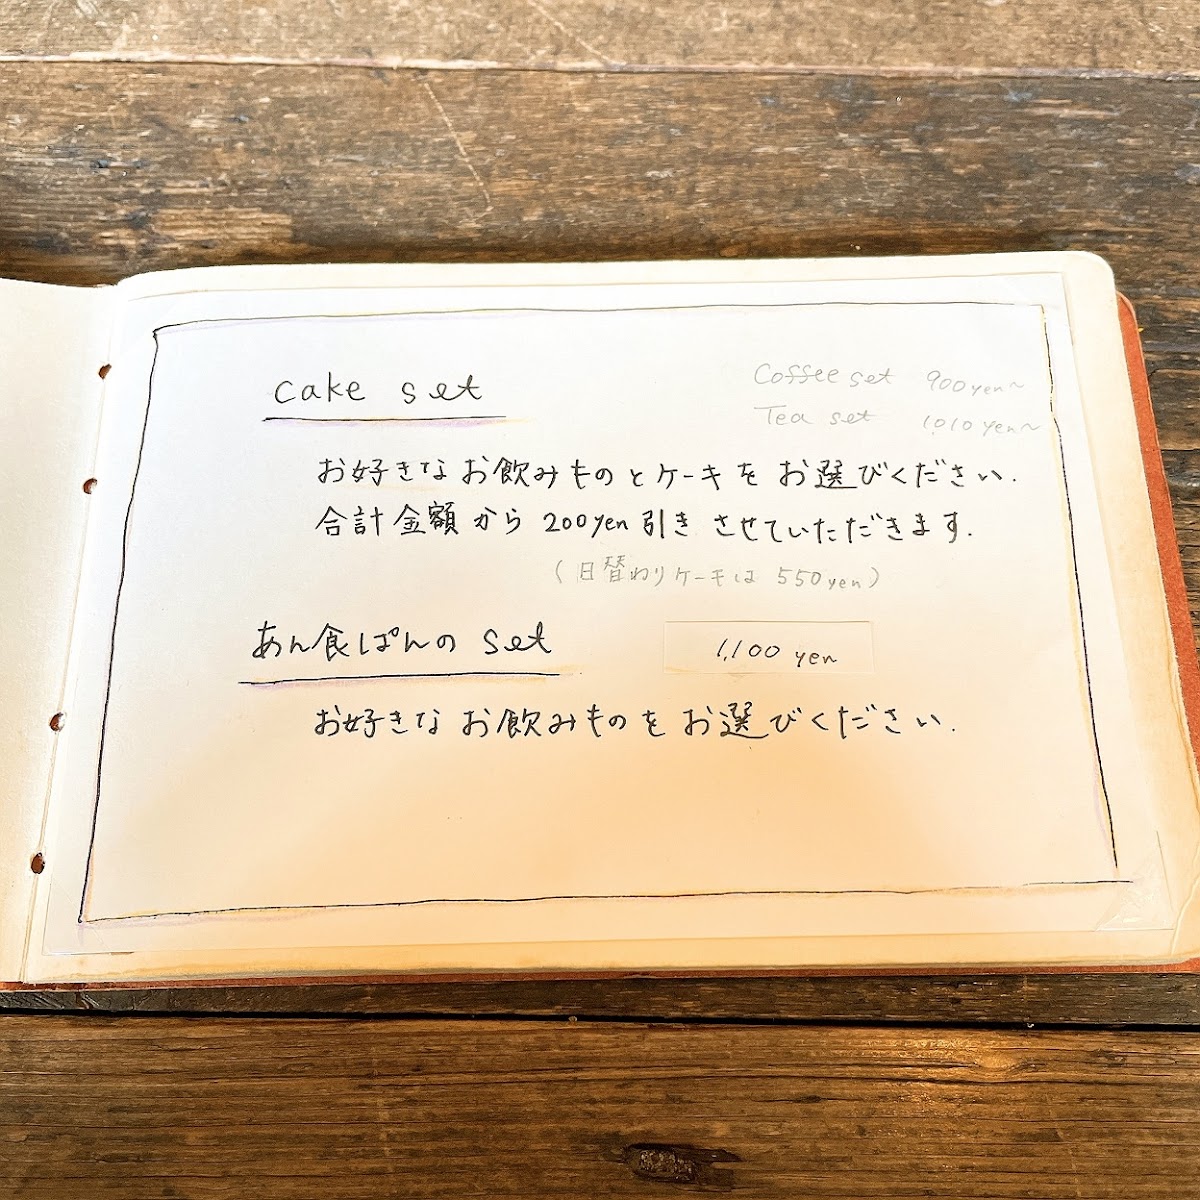 cake set
Coffee set 900yen~
Tea set 1,010yen~
お好きなお飲みものとケーキをお選びください.
合計金額から200yen引きさせていただきます.
(日替わりケーキは550yen)
あん食ぱんのset 1,100 yen
お好きなお飲みものをお選びください.